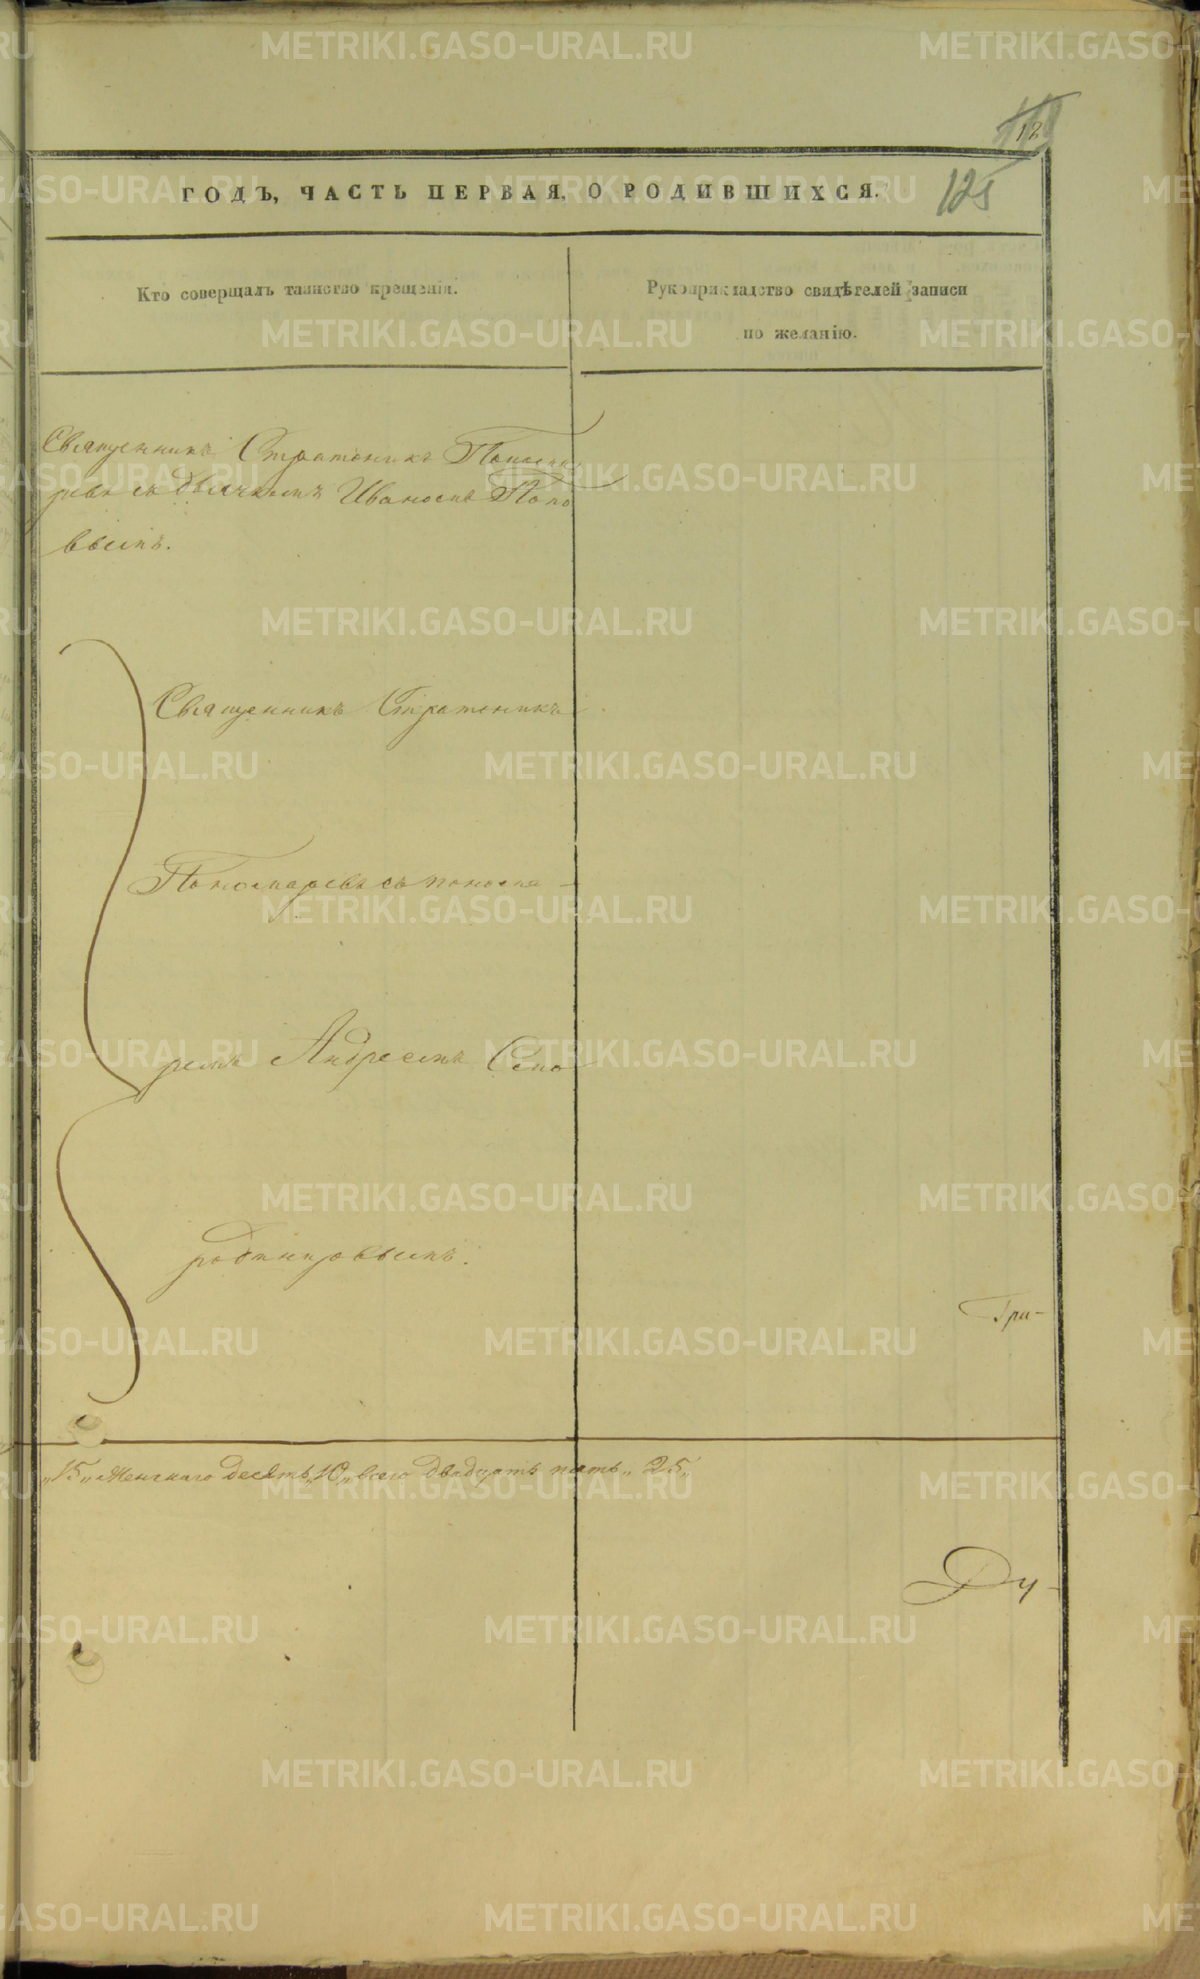 12
125
ГОДЪ, ЧАСТЬ ПЕРВАЯ, О РОДИВШИХСЯ.
Кто совершалъ таинство крещенія.
Рукоприкладство свидѣтелей записи
по желанію.
Священникъ Стратоникъ Понома
ревъ съ дьячкомъ Иваномъ Попо
вымъ.
Священникъ Стратоникъ
Пономаревъ съ понома-
ремъ Андреемъ Сми
родинцовымъ.
Гри-
„15„ женскаго десять „10„ всего двадцать пять „25„
Ду-
METRIKI.GASO-URAL.RU